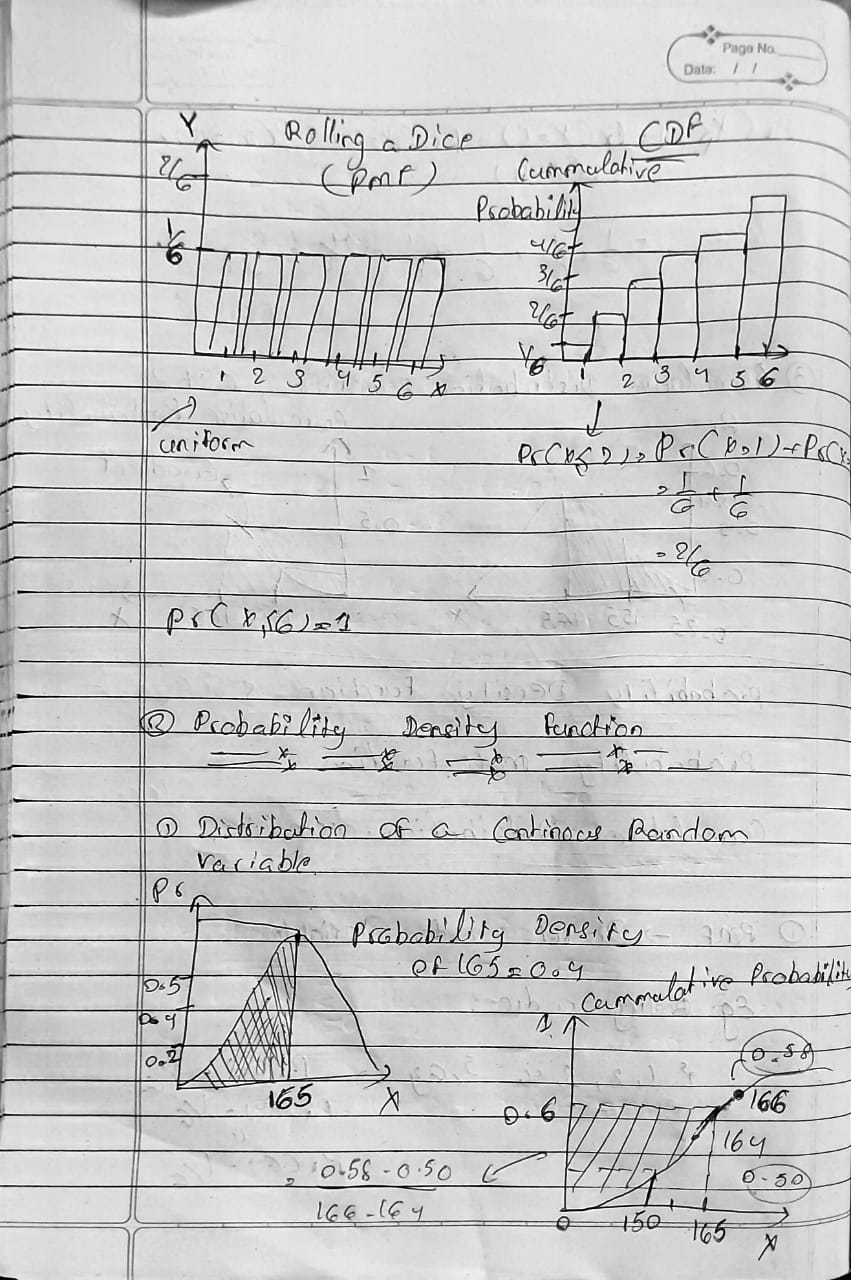 Page No.
Date: / /
Rolling a Dice
(PMF)
Y
2/6
1/6
1 2 3 4 5 6 X
uniform
CDF
Cummulative
Probability
4/6
3/6
2/6
1/6
1 2 3 4 5 6
Pr(X≤2) = Pr(X=1) + Pr(X
= 1/6 + 1/6
= 2/6
Pr(X≤6) = 1
② Probability Density Function
① Distribution of a Continous Random
variable.
Pr
0.5
0.4
0.2
165 X
Probability Density
of 165 = 0.4
Cummulative Probability
1
0.6
0.58
166
164
0.50
0 150 165 X
= 0.58 - 0.50
166 - 164